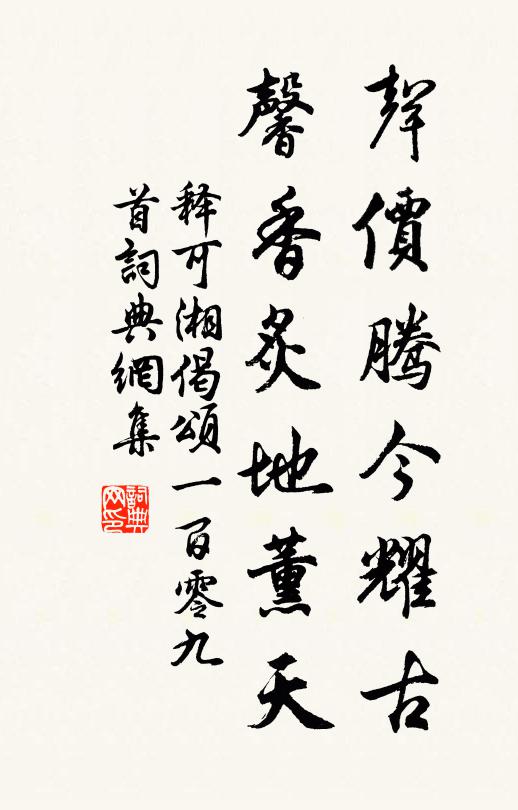 聲價騰今耀古
馨香炙地薰天
释可湘偈頌一百零九
首詞典網集
詞典
网印